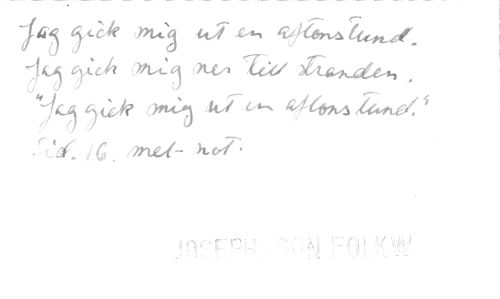 Jag gick mig ut en aftonstund.
Jag gick mig ner till stranden.
"Jag gick mig ut en aftonstund."
Sid. 16. mel- not.
JOSEPHSON FOLKW